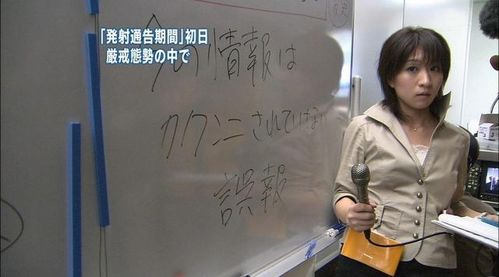 「発射通告期間」初日
厳戒態勢の中で
情報は
カクンニされていない
誤報